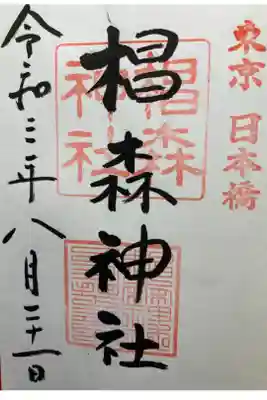 東京 日本橋
椙森神社
椙森
神社
令和三年 八月二十一日